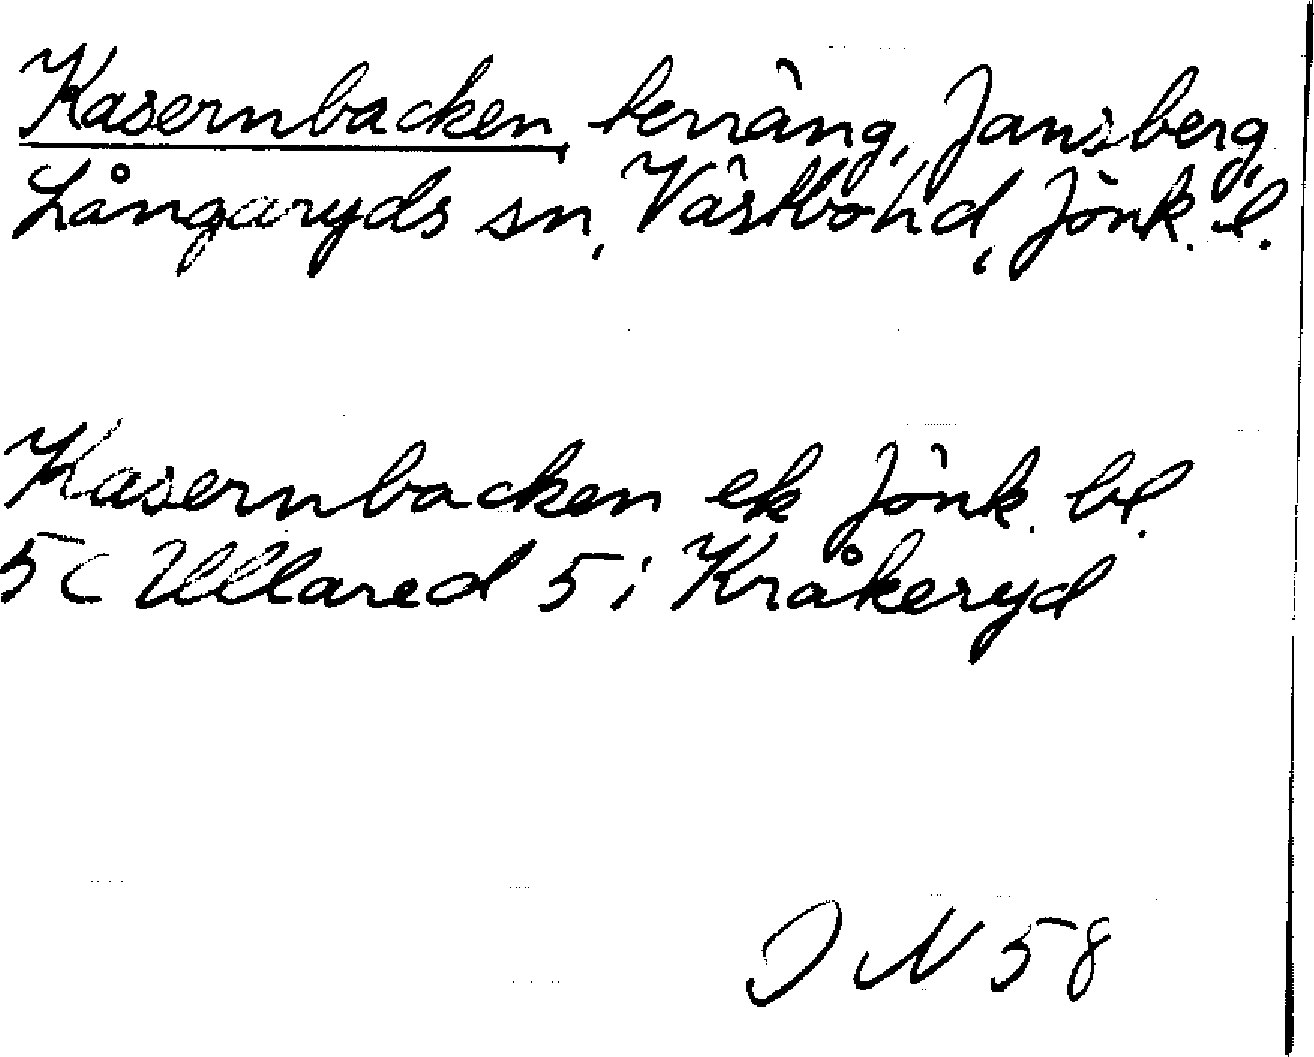 Kasernbacken, terräng, Jansberg,
Långaryds sn, Västbo hd, Jönk. l.
Kasernbacken ek Jönk. bl.
5 C Ullared 5 i Kråkeryd
J N 58